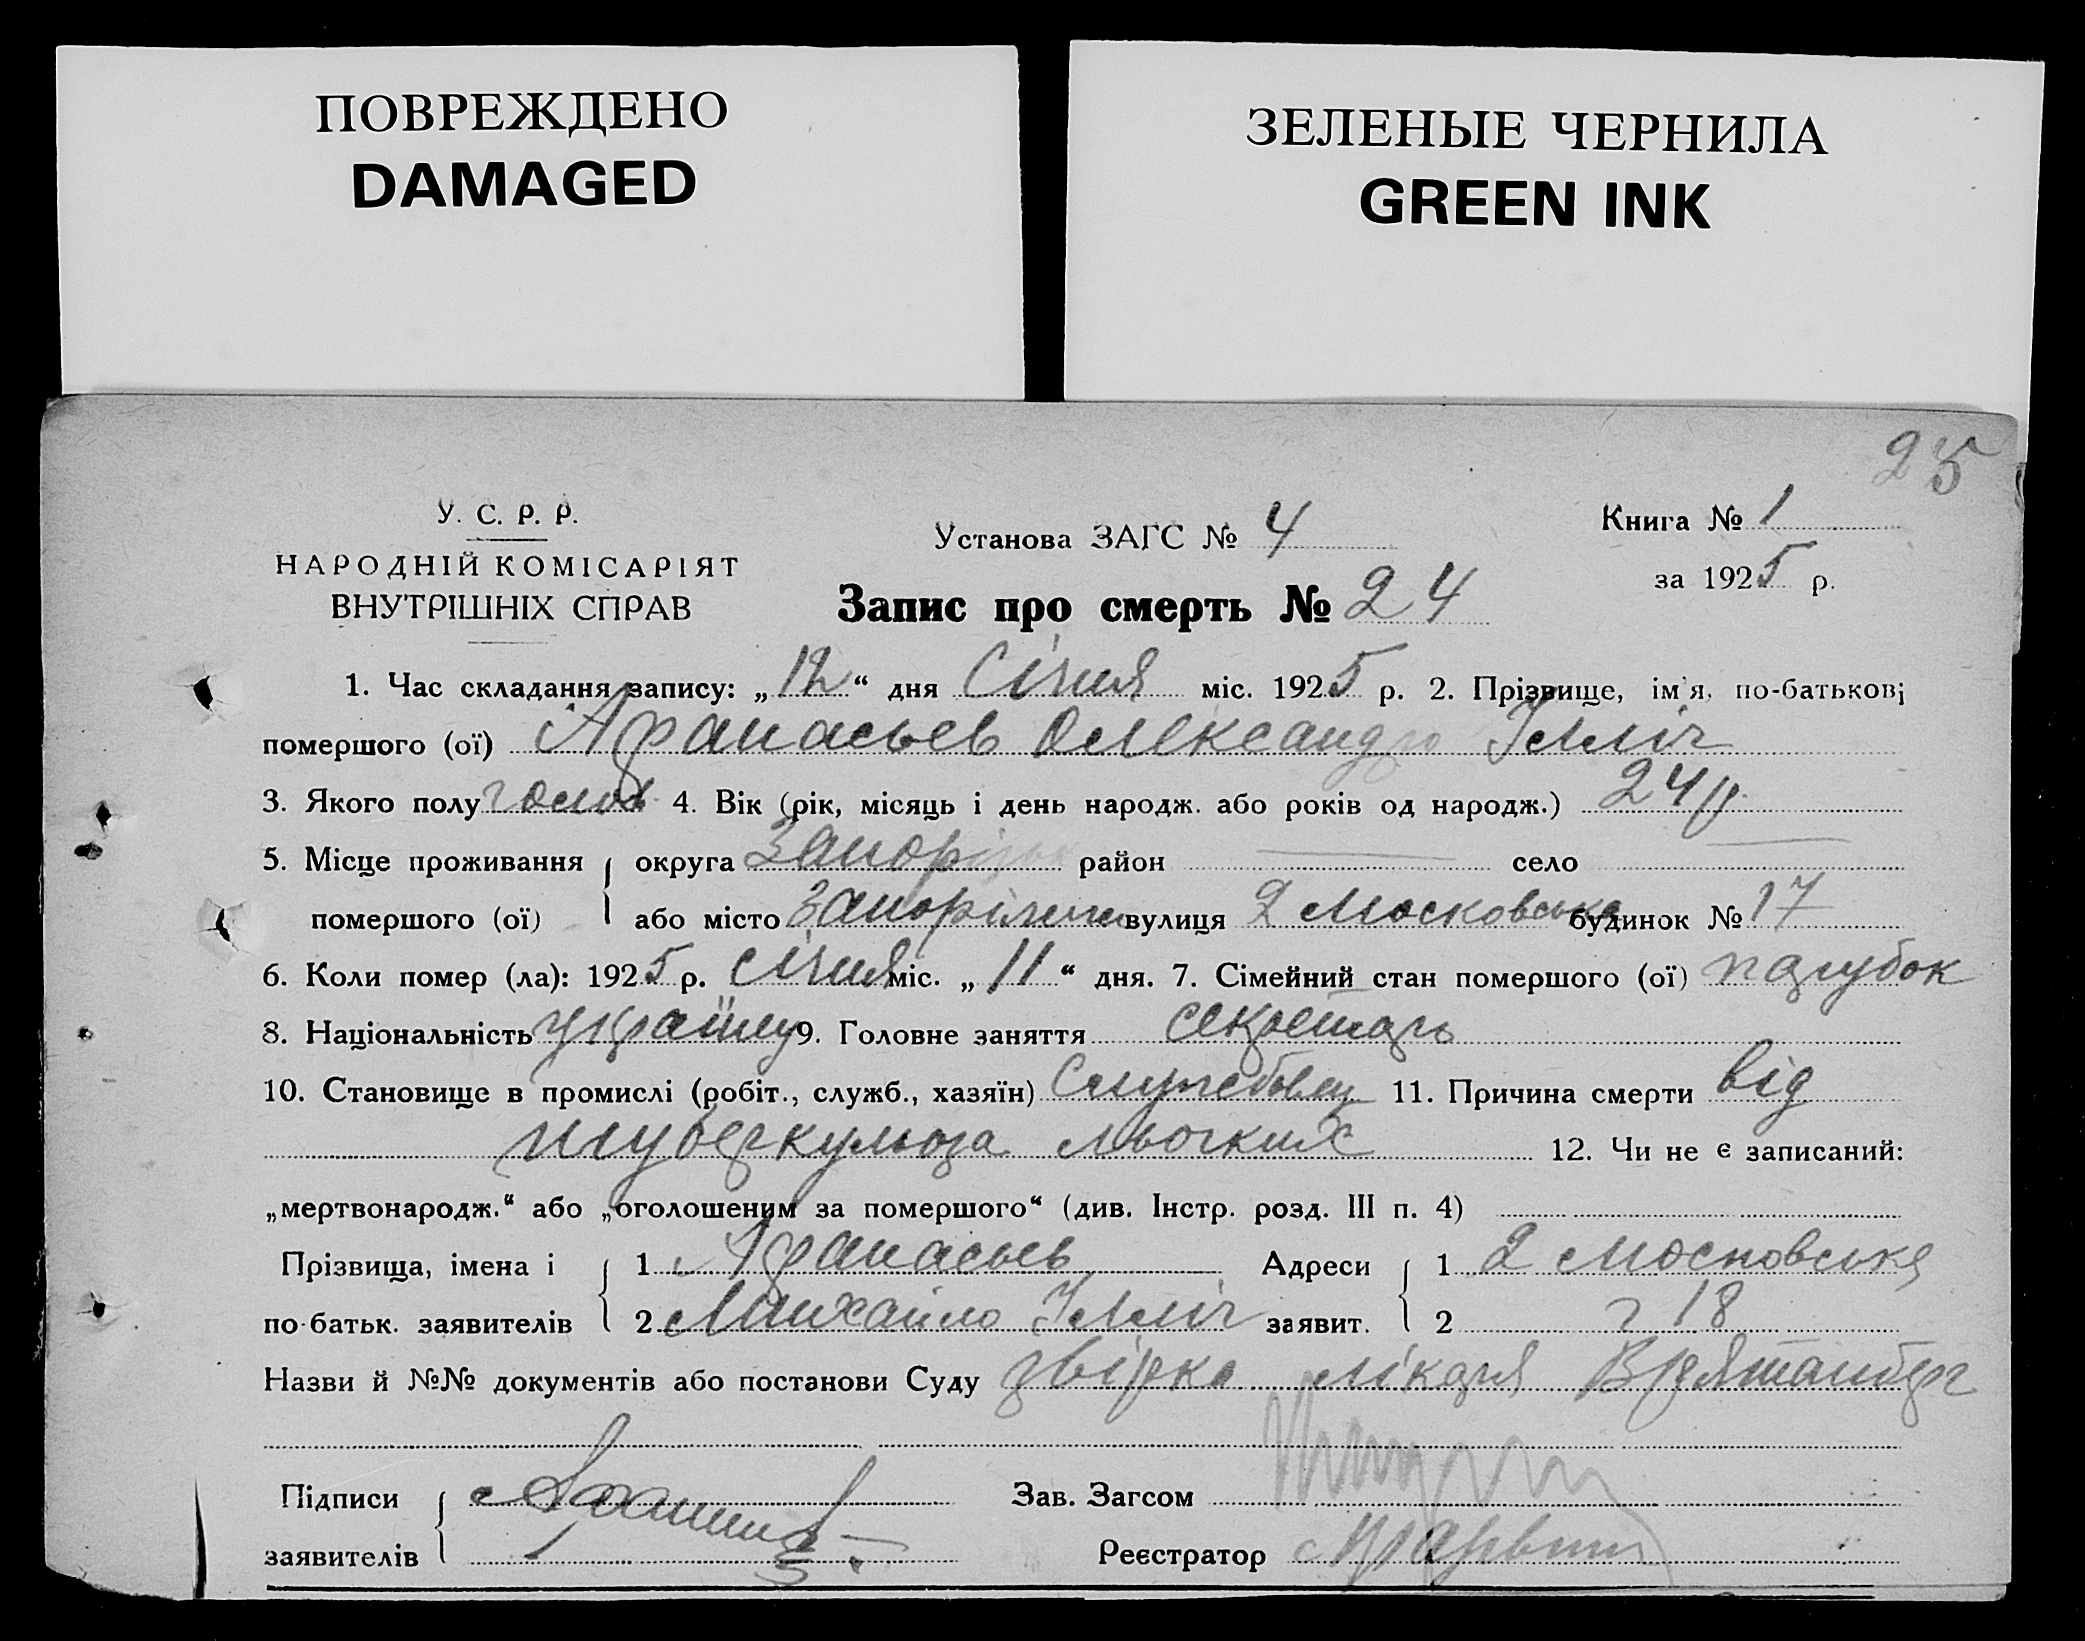 ПОВРЕЖДЕНО
DAMAGED
ЗЕЛЕНЫЕ ЧЕРНИЛА
GREEN INK
25
У. С. Р. Р.
НАРОДНІЙ КОМІСАРІЯТ
ВНУТРІШНІХ СПРАВ
Установа ЗАГС № 4
Книга № 1
за 1925 р.
Запис про смерть № 24
1. Час складання запису: „12“ дня Січня міс. 1925 р. 2. Прізвище, ім'я, по-батькові
помершого (ої) Афанасьев Олександр Ілліч
3. Якого полу голов 4. Вік (рік, місяць і день народж. або років од народж.) 24 р.
5. Місце проживання округа Запорізьк район — село —
помершого (ої) або місто Запоріжжя вулиця 2 Московська будинок № 17
6. Коли помер (ла): 1925 р. Січня міс. „11“ дня. 7. Сімейний стан помершого (ої) парубок
8. Національність україн 9. Головне заняття секретарь
10. Становище в промислі (робіт., служб., хазяїн) Службовец 11. Причина смерти від
туберкульоза льогких 12. Чи не є записаний:
„мертвонародж.“ або „оголошеним за помершого“ (див. Інстр. розд. III п. 4)
Прізвища, імена і 1 Афанасьев Адреси 1 2 Московська
по-батьк. заявителів 2 Михайло Ілліч заявит. 2 18
Назви й №№ документів або постанови Суду лікаря
Підписи Зав. Загсом
заявителів Реєстратор